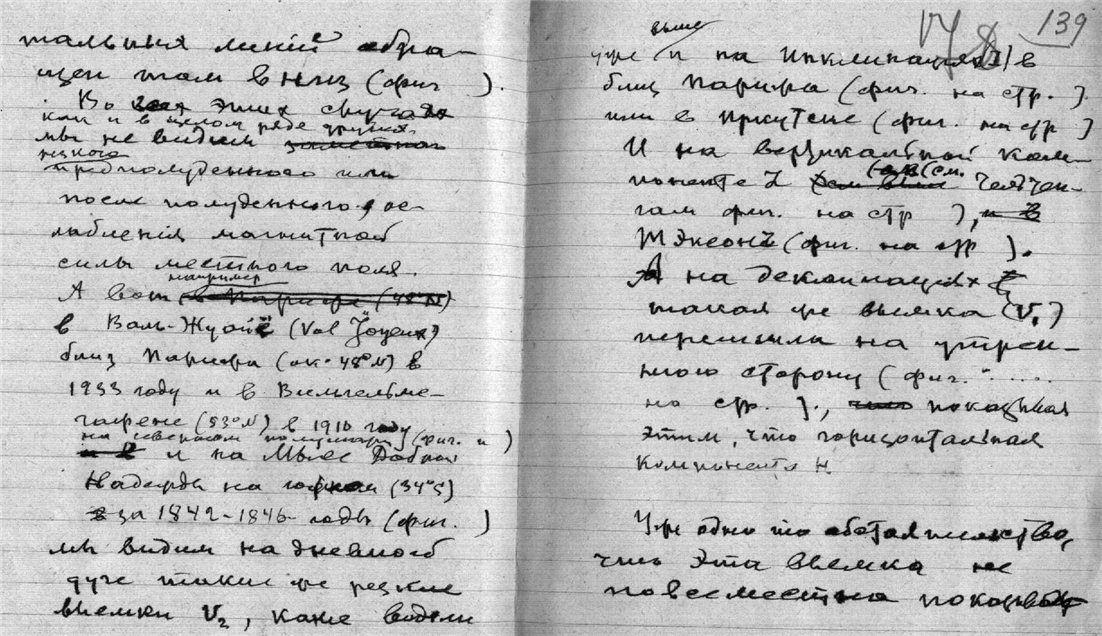 тальная линія обра-
щен там в низ (фиг. ).
Во всех этих случаях
как и в целом ряде других
мы не видим заметного
никакого
предполуденного или
после полуденного, ос-
лабленія магнитной
силы местного поля.
например
А вот в Париже (48°N)
в Валь-Жуайё (Val Joyeux)
близ Парижа (ок. 48°N) в
1933 году и в Вильгельмс-
гафене (53°N) в 1910 году
на северном полушарии (фиг. и )
и на Мысе Доброй
Надежды на южном (34°S)
за 1842-1846 годы (фиг. )
мы видим на дневной
дуге такие же резкие
выемки V₂, какие видели
139
выше
уже и на инклинациях в
близ Парижа (фиг. на стр. ).
или в Иркутске (фиг. на стр )
И на вертикальной ком-
поненте Z (см.
гам фиг. на стр ), и в
Джэксонъ (фиг. на стр ).
А на деклинациях
такая же выемка (V₁)
перешла на утрен-
нюю сторону (фиг. .....
на стр. )., показывая
этим, что горизонтальная
компонента H
Уже одно то обстоятельство,
что эта выемка не
повсеместна показывает